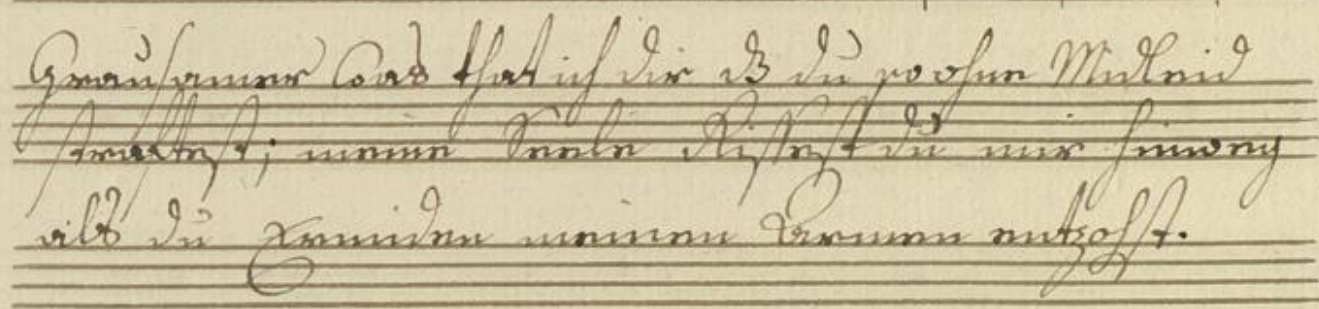 Grausamer was that ich dir dß du so ohne Mitleid
straftest; meine Seele Rissest du mir hinweg
als du Freuden meinen Armen entzohst.